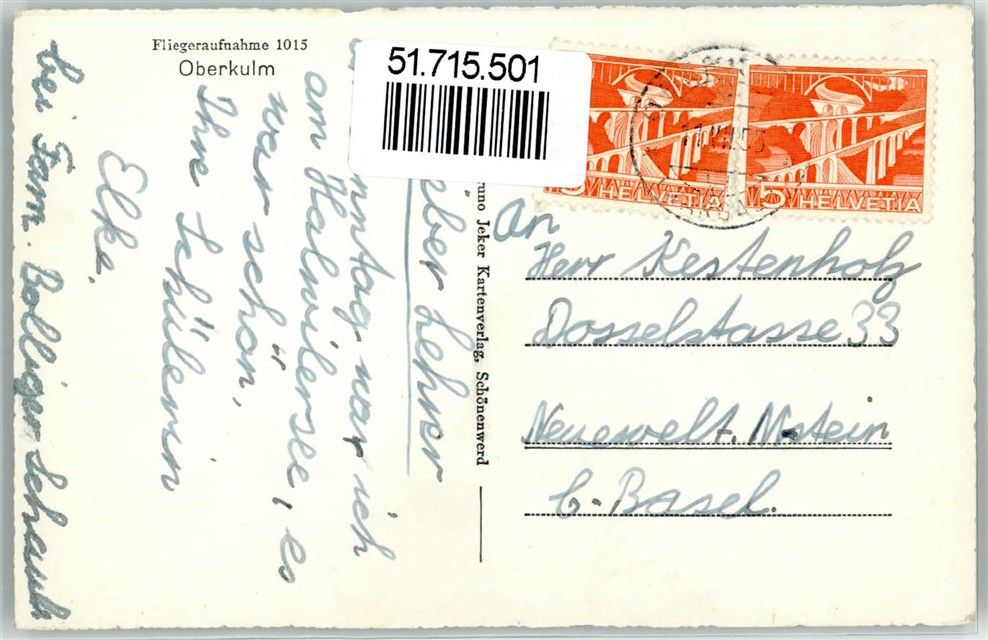 Fliegeraufnahme 1015
Oberkulm
51.715.501
HELVETIA
5 HELVETIA
uno Jeker Kartenverlag, Schönenwerd
ieber Lehrer
nntag war ich
am Halwilersee, es
war schön,
Ihre Schülerin
Elke,
bei Fam. Bolliger
An
Herr Kestenholz
Dosselstasse 33
Neuewelt. Mstein
b. Basel.